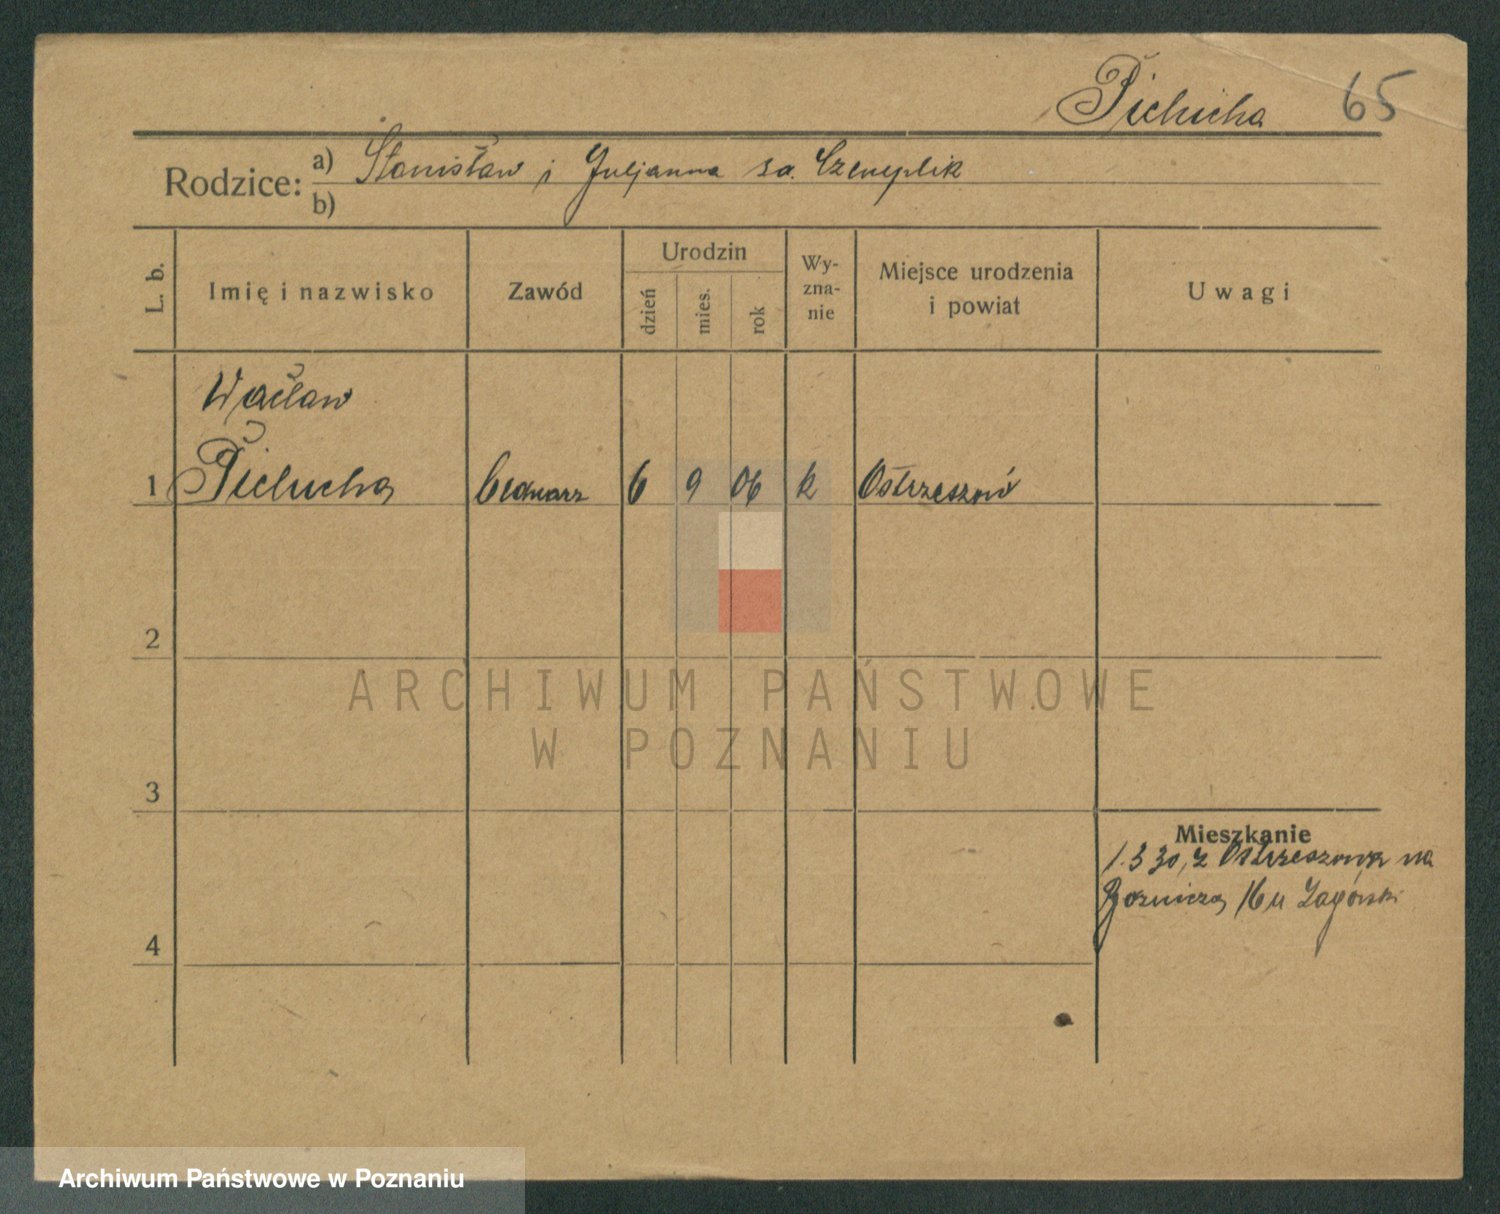 Pichucha 65
Rodzice: a) Stanisław i Juljanna
b)
L. b.
Imię i nazwisko
Zawód
Urodzin
dzień
mies.
rok
Wy-
zna-
nie
Miejsce urodzenia
i powiat
Uwagi
Wacław
1 Pichucha bednarz 6 9 06 k Ostrzeszów
2
ARCHIWUM PAŃSTWOWE
W POZNANIU
3
Mieszkanie
1.3 30, z Ostrzeszowa na
16 u Zagórski
4
Archiwum Państwowe w Poznaniu